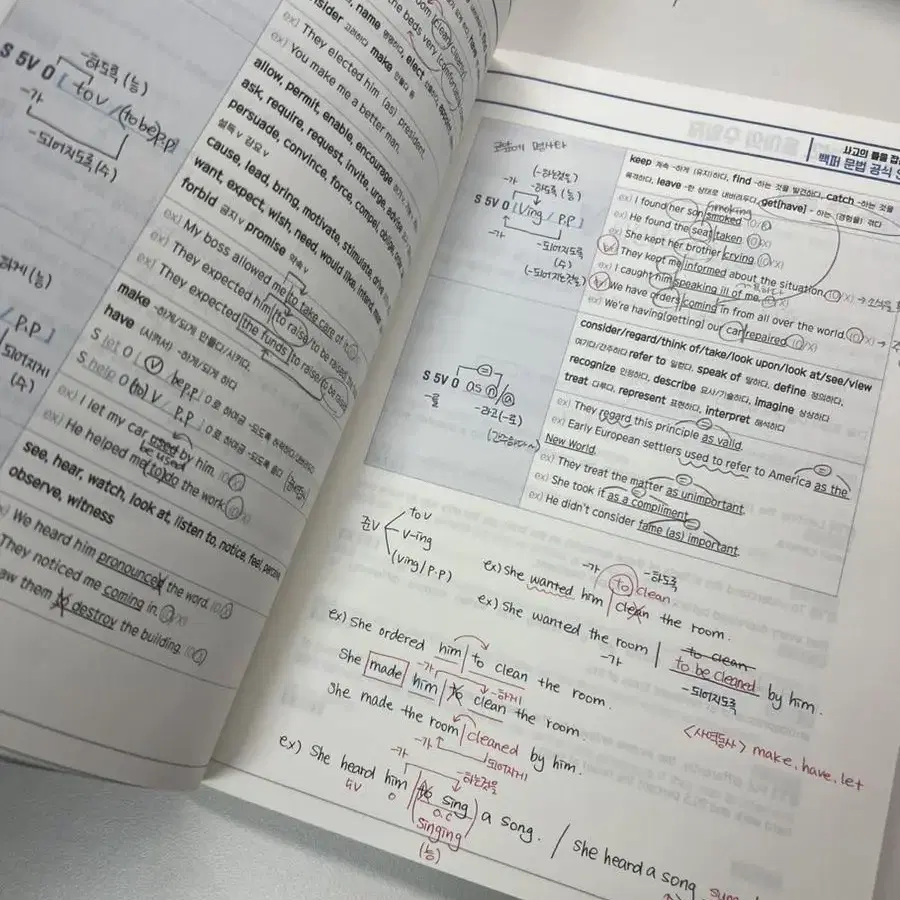 -하도록(능)
S 5V O [to V / (to be) p.p]
-가
-되어지도록(수)
하게(능)
/ P.P]
되어지게
(수)
the beds very (comfortably
name 명명하다, elect
consider 고려하다 make 만들다
ex) They elected him (as) president
ex) You make me a better man.
allow, permit, enable, encourage
ask, require, request, invite, urge, advise
persuade, convince, force, compel, oblige
설득V 강요V
cause, lead, bring, motivate, stimulate, drive
want, expect, wish, need, would like, intend
forbid 금지V promise 약속V
ex) My boss allowed me to take care of it.
ex) They expected him to raise/to be raised
ex) They expected the funds to raise/to be raised
make -하게/되게 만들다/시키다.
have (시켜서) -하게/되게 하다
S let O V / be p.p / O로 하여금 -되도록
S help O (to) V / P.P / O로 하여금 -되도록 돕다
ex) I let my car used by him. (O/X)
be used
ex) He helped me (to) do the work. (O/X)
see, hear, watch, look at, listen to, notice, feel, perceive
observe, witness
We heard him pronounce the word. (O/X)
They noticed me coming in. (O/X)
aw them to destroy the building. (O/X)
사고의 틀을 잡
백퍼 문법 공식
(-하는것을)
-가 -하도록(능)
S 5V O [Ving / P.P]
-가 -되어지도록
(수)
(-되어지는것을)
keep 계속 -하게 (유지)하다, find -하는 것을 발견하다, catch -하는 것을
목격하다, leave -한 상태로 내버려두다, get[have] - 하는 (경험을) 하다
smoking
ex) I found her son smoked (O/X)
ex) He found the seat taken (O/X)
ex) She kept her brother crying (O/X)
ex) They kept me informed about the situation. (O/X)
ex) I caught him speaking ill of me. (O/X)
ex) We have orders coming in from all over the world (O/X)
ex) We're having[getting] our car repaired (O/X)
S 5V O as n/a
-를 -라고(-로)
consider/regard/think of/take/look upon/look at/see/view
여기다/간주하다 refer to 일컫다, speak of 말하다, define 정의하다,
recognize 인정하다, describe 묘사/기술하다, imagine 상상하다
treat 다루다, represent 표현하다, interpret 해석하다
ex) They regard this principle as valid.
ex) Early European settlers used to refer to America as the
New World.
ex) They treat the matter as unimportant.
ex) She took it as a compliment.
ex) He didn't consider fame (as) important.
준V
to V
V-ing
(Ving/P.P)
-가 -하도록
ex) She wanted him | to clean the room.
clean
ex) She wanted the room | to clean
to be cleaned by him.
-가
-되어지도록
ex) She ordered him | to clean the room.
-가 -하게
She made him | to clean the room.
She made the room | cleaned by him.
-가 되어지게
<사역동사> make, have, let
-가 -하는것을
ex) She heard him to sing a song. / She heard a song
5V O O.C
singing
(능)